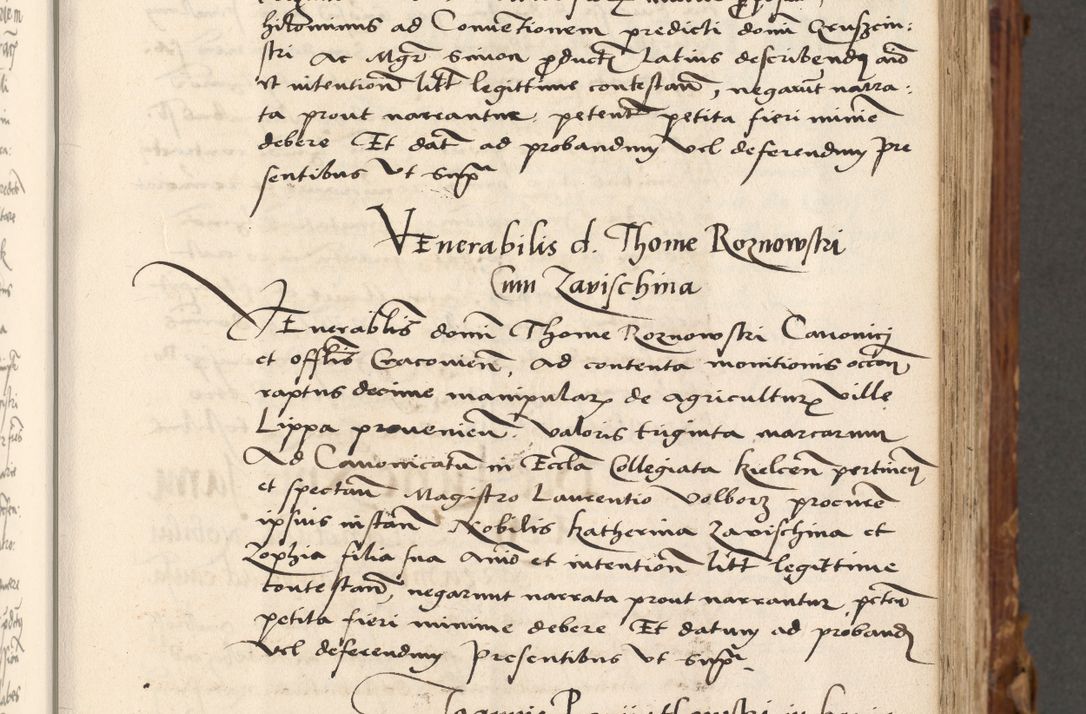 hitominus ad Conuentionem predicti domi Gruszcin:
ski Ac Mgr Simon product Latius describend aio
et intention litt legittime contestan, negarut narra:
ta prout narrantur, petent petita fieri minie
debere Et dat ad probandum vel deferendum pre
sentibus vt supra
Venerabilis d. Thome Roznowski
Cum Zavischina
VEnerabilis domi Thome Roznowski Canonici
et offlis Cracovien, ad contenta monitionis occon
raptus decime manipular de agricultur ville
Lippa prouenien. valoris triginta marcarum
Ad Canonicatu in Eccla Collegiata kielcen pertinen
et spectan Magistro Laurentio Volborz procuren
ipsius instan Nobilis katherina Zavischina et
Zophia filia sua Anio et intention litt legittime
contestan, negarunt narrata prout narrantur, peten
petita fieri minime debere Et datum ad proband
vel deferendum presentibus vt supra